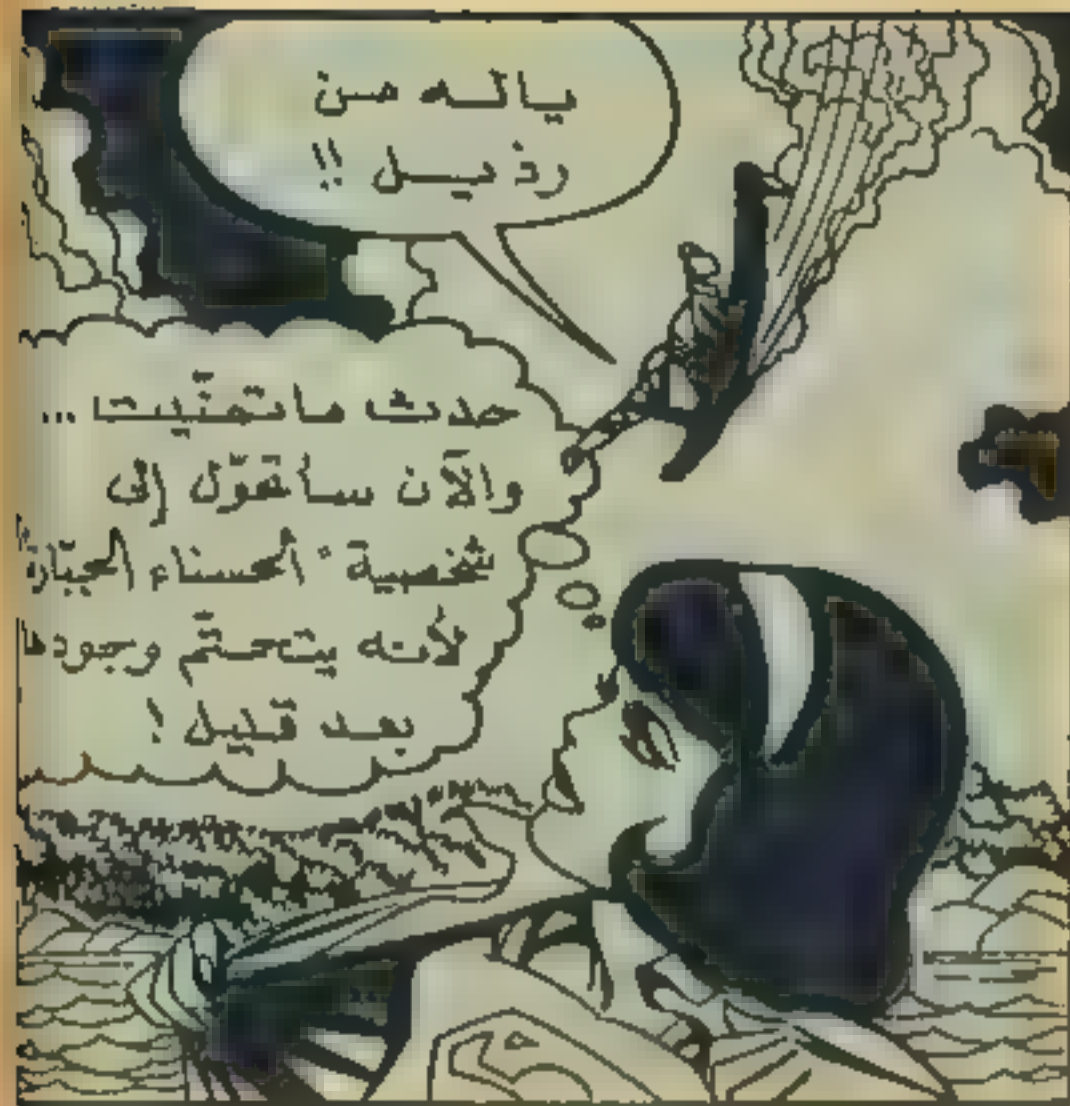 ياله من
رذيل !!
حدث ما تمنّيت ...
والآن سأتحوّل إلى
شخصية " الحسناء الجبّارة
لأنه يتحتّم وجودها
بعد قليل !